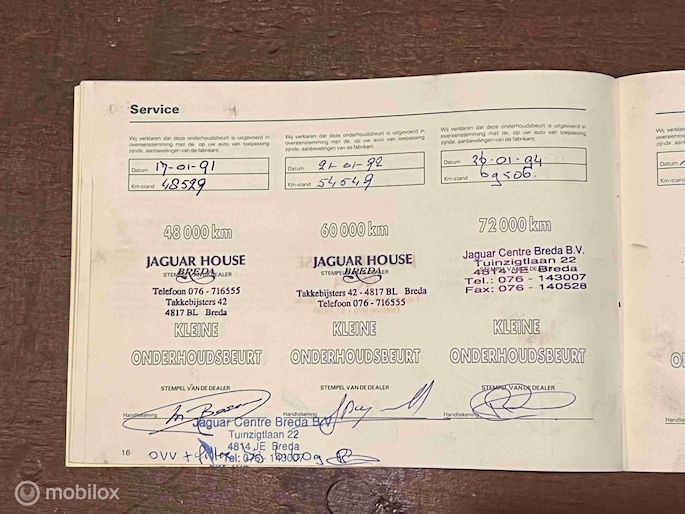 Service
Wij verklaren dat deze onderhoudsbeurt is uitgevoerd in
overeenstemming met de, op uw auto van toepassing
zijnde, aanbevelingen van de fabrikant.
Datum 17-01-91
Km-stand 48529
48 000 km
JAGUAR HOUSE
BREDA
STEMPEL VAN DE DEALER
Telefoon 076 - 716555
Takkebijsters 42
4817 BL Breda
KLEINE
ONDERHOUDSBEURT
STEMPEL VAN DE DEALER
Handtekening
Wij verklaren dat deze onderhoudsbeurt is uitgevoerd in
overeenstemming met de, op uw auto van toepassing
zijnde, aanbevelingen van de fabrikant.
Datum 21-01-92
Km-stand 54549
60 000 km
JAGUAR HOUSE
BREDA
STEMPEL VAN DE DEALER
Takkebijsters 42 - 4817 BL Breda
Telefoon 076 - 716555
KLEINE
ONDERHOUDSBEURT
STEMPEL VAN DE DEALER
Handtekening
Wij verklaren dat deze onderhoudsbeurt is uitgevoerd in
overeenstemming met de, op uw auto van toepassing
zijnde, aanbevelingen van de fabrikant.
Datum 01-94
Km-stand 69506.
72 000 km
Jaguar Centre Breda B.V.
Tuinzigtlaan 22
4814 JE Breda
Tel.: 076 - 143007
Fax: 076 - 140528
KLEINE
ONDERHOUDSBEURT
STEMPEL VAN DE DEALER
Handtekening
Jaguar Centre Breda B.V.
Tuinzigtlaan 22
4814 JE Breda
Tel.: 076 - 143007
OVV +
16
mobilox